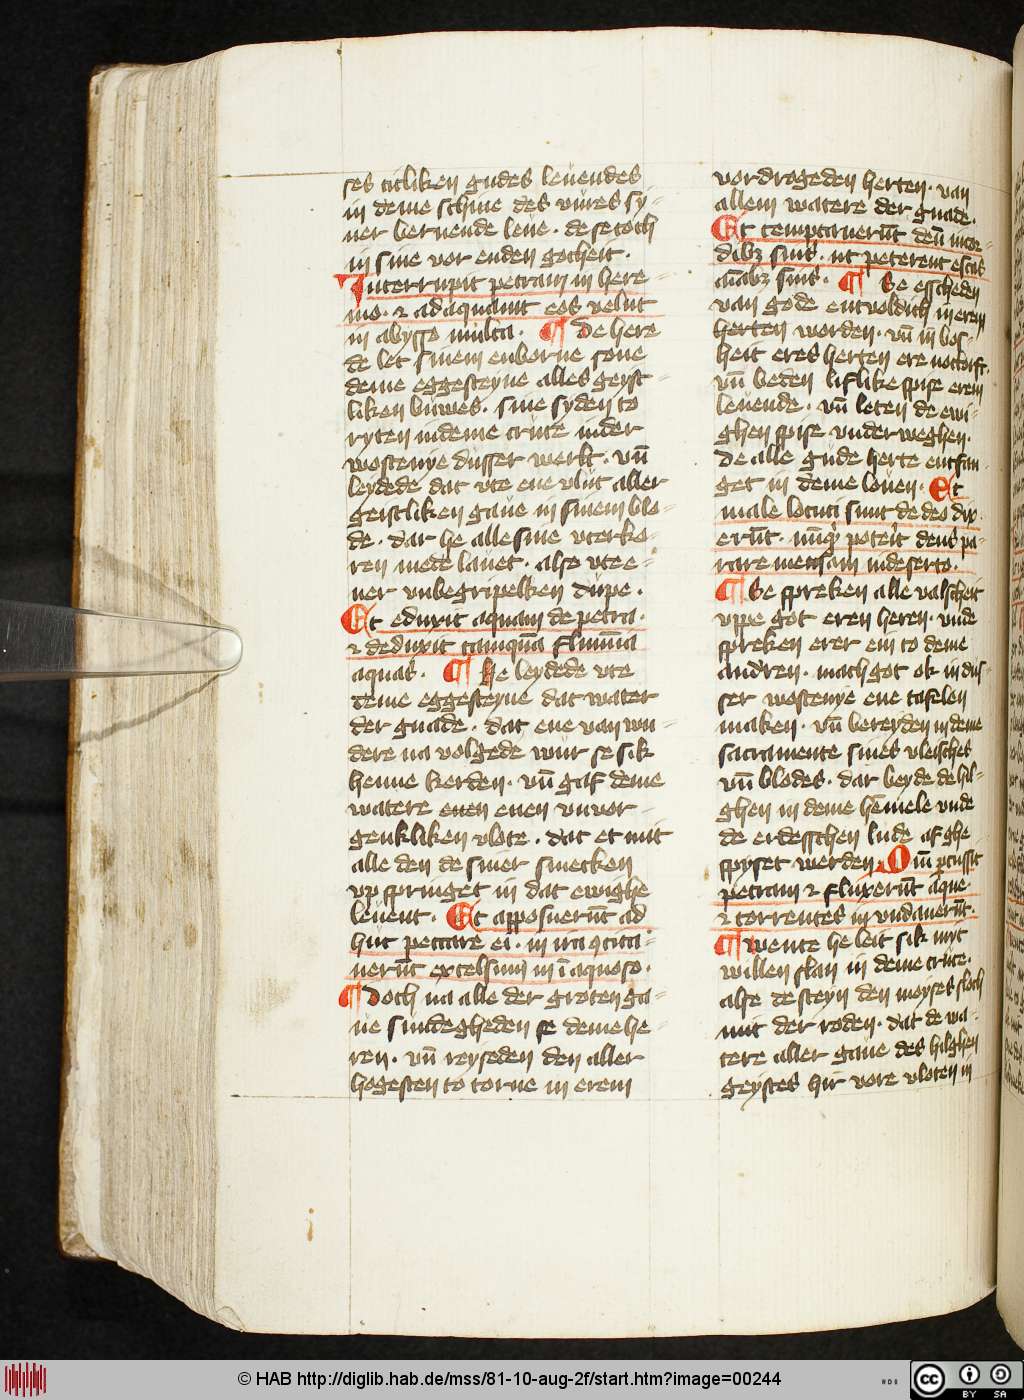 ses titliken gudes leuendes
in deme schine des vures sy-
ner bernende leue. de se toch
in sine vor enden gotheit.
Interrupit petram in here
mo. et adaquauit eos velut
in abysso multa. ¶ De here
de let sinem enborne sone
deme eggesteyne alles geyst-
liken buwes. sine syden to
ryten in deme cruce in der
wostenye dusser werlt. vn̄
leydede dat vte ene vlut aller
geistliken gaue in sinem blo-
de. dar he alle sine vterko-
ren mede lauet. also vte e-
ner vnbegripelken dupe.
Et eduxit aquam de petra.
et deduxit tamquā flumīa
aquas. ¶ He leydede vte
deme eggesteyne dat water
der gnade. dat ene van wu-
dere na volgede wur se sik
henne kerden. vn̄ gaf deme
watere enen enen vnvor-
genkliken vlote. dat et mit
alle den de siner smecken
vp springet in dat ewighe
leuent. Et apposuerūt ad
huc peccare ei. in ira ꝯcita-
uerūt excelsum in īaquoso.
¶ Doch na alle der groten ga-
ue sundegheden se deme he-
ren. vn̄ reyseden den aller
hogesten to torne in erem
vordrogeden herten. van
allem watere der gnade.
Et temptauerūt deū in cor-
dibꝫ suis. ut peterent escas
aīabꝫ suis. ¶ Se esscheden
van gode entvoldich in erem
herten worden. vn̄ in bos-
heit eres herten ere notdorft.
vn̄ beden liflike spise erem
leuende. vn̄ leten de ewi-
ghen spise vnderweghen.
De alle gude herte entfan-
get in deme louen. Et
male locuti sunt de deo dix-
erūt. nūqͥd poterit deus pa-
rare mensam in deserto.
¶ Se spreken alle valscheit
vppe got eren heren. vnde
spreken erer ein to deme
andren. mach got ok in dus-
ser wostenye ene tafelen
maken. vn̄ bereyden in deme
sacramente sines vleisches
vn̄ blodes. dar beyde de hil-
ghen in deme hēmele vnde
de erdesschen lude af ghe
spyset werden. Qm̄ ꝑcussit
petram et fluxerūt aque
et torrentes inundauerūt.
¶ Wente he leit sik myt
willen slan in deme cruce.
alse de steyn den moyses sloch
mit der roden. dat de wa-
tere aller gaue des hilghen
geystes hir vore vloten in
© HAB http://diglib.hab.de/mss/81-10-aug-2f/start.htm?image=00244
cc
BY SA